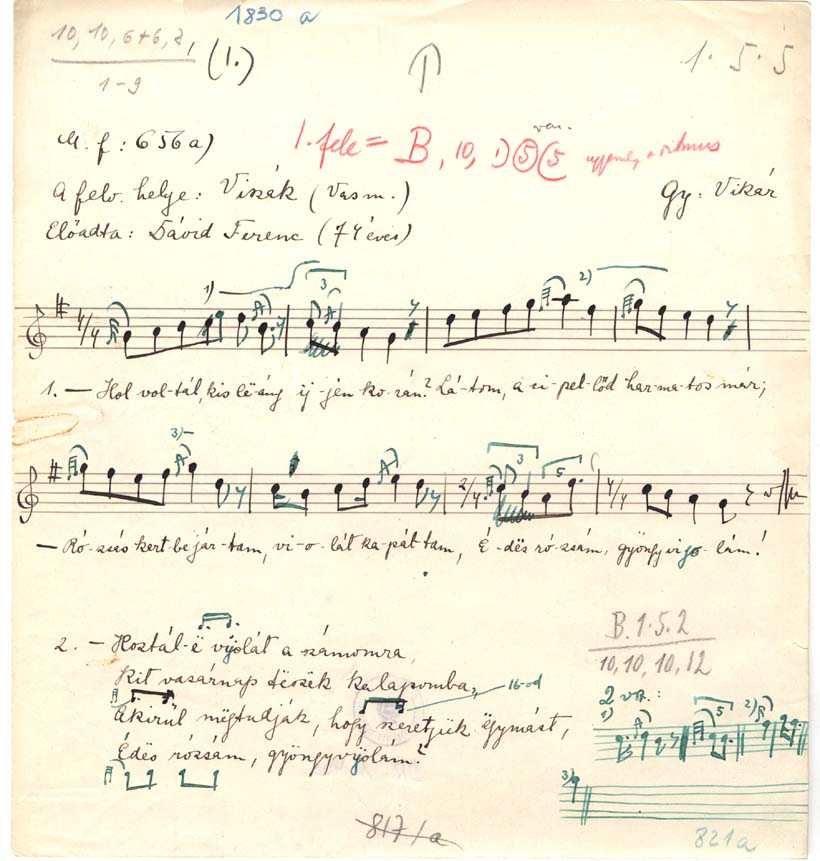 1830 a
10, 10, 6+6, 8,
1-9
(1.)
1. 5. 5
M. f: 656a)
1. fele = B, 10, 1) 5 (5
var.
ritmus
A felv. helye: Viszák (Vasm.)
Gy: Vikár
Előadta: Dávid Ferenc (74 éves)
1)
3
2)
4/4
1. — Hol vol-tál, kis lë-ány ij-jen ko-rán? Lá-tom, a ci-pel-lőd har-ma-tos már;
3)
3
5
2/4
4/4
— Ró-zsás kert-be jár-tam, vi-o-lát ka-pát-tam, É-dës ró-zsám, gyöngyvijo-lám!
2. — Hoztál-ë vijolát a számomra,
Kit vasárnap tëszëk kalapomba,
16-od
Akirül mëgtudják, hogy szeretjük ëgymást,
Édës rózsám, gyöngyvijolám?
B. 1. 5. 2
10, 10, 10, 12
2 vsz.:
1)
5
2)
3)
817/a
821a